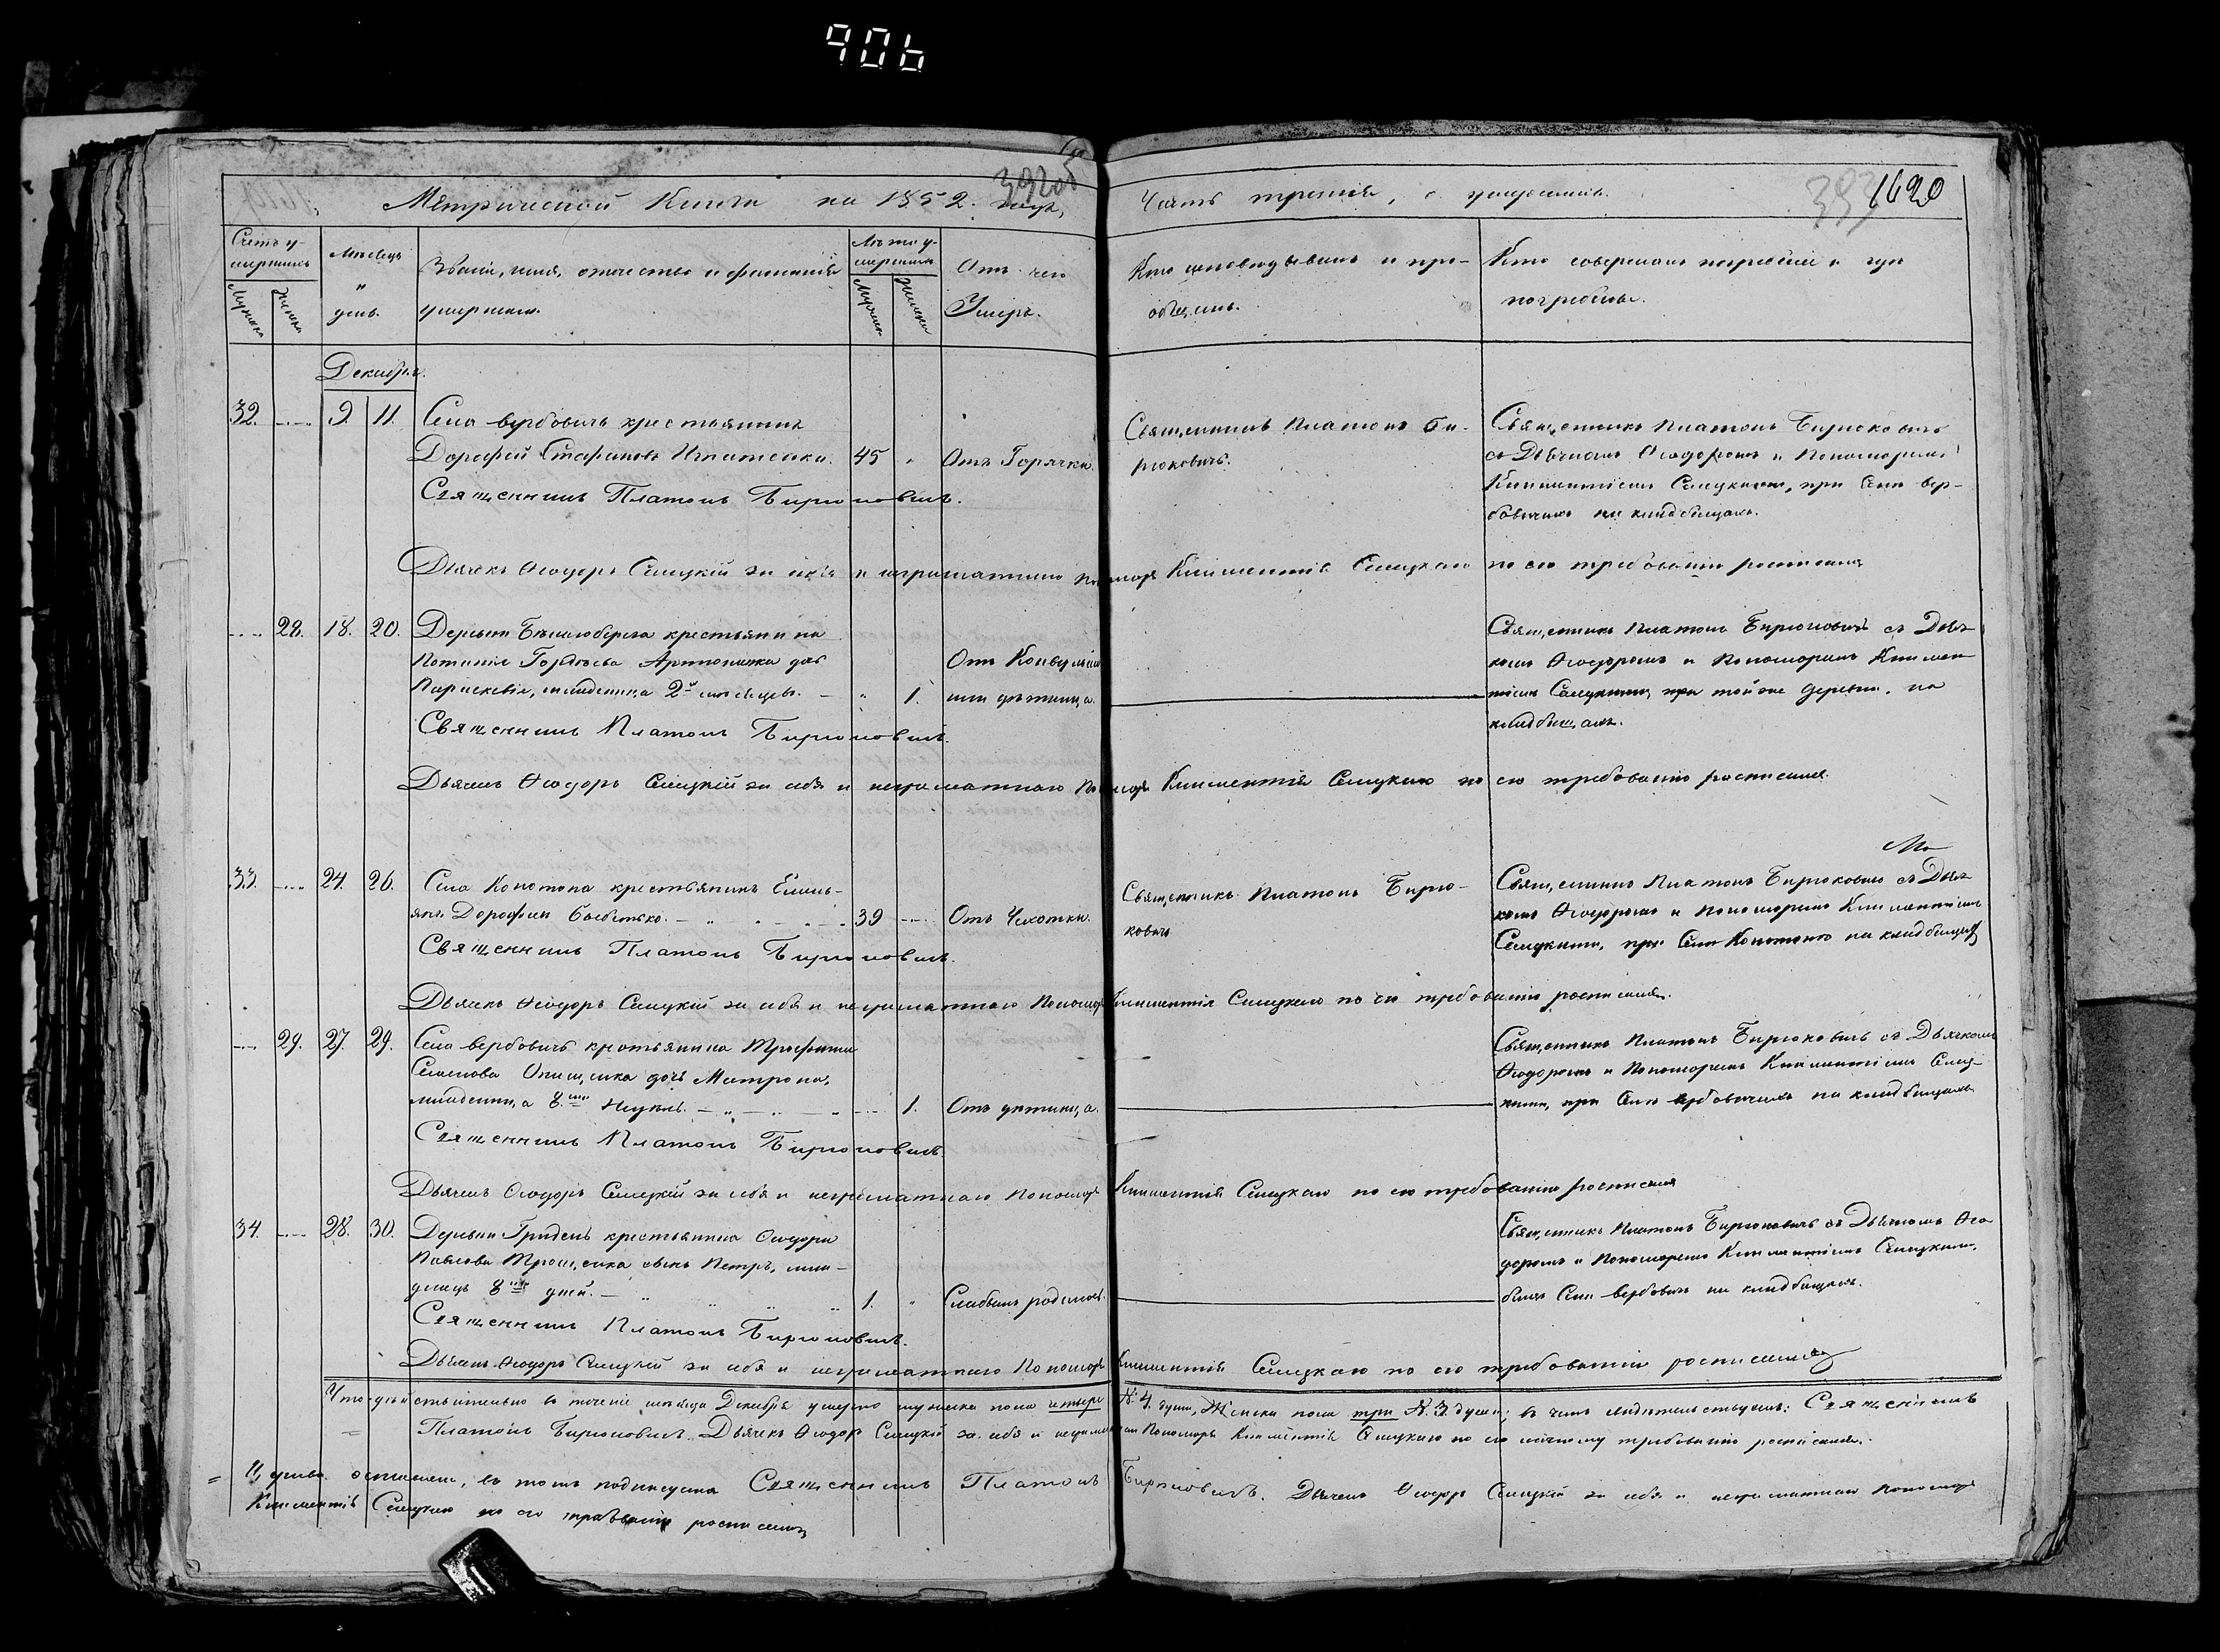 906
392об
393
1620
Метрической Книги на 1852. годъ,
Часть третія, о умершихъ.
Счетъ у-
мершихъ
Мужеска
Женска
Мѣсяцъ
и
день.
Званіе, имя, отчество и фамилія
умершаго.
Лѣта у-
мершихъ
Мужеска
Женска
Отъ чего
Умеръ.
Кто исповѣдывалъ и прі-
общалъ.
Кто совершалъ погребеніе и гдѣ
погребены.
Декабрь.
32. 9. 11. Села Вербовичъ крестьянинъ
Дорофей Стефановъ Игнатенко. 45 Отъ Горячки.
Священникъ Платонъ Бирюковичъ.
Священникъ Платонъ Би-
рюковичъ.
Священникъ Платонъ Бирюковичъ
съ Дьячкомъ Ѳеодоромъ и Пономоремъ
Климентіемъ Селицкимъ, при Селѣ Вер-
бовичахъ на кладбищахъ.
Дьячекъ Ѳеодоръ Селицкій за себя и неграматнаго Пономоря Климентія Селицкаго по его требованію росписался
28. 18. 20. Деревни крестьянина
Потапія Гордѣева Артюшенка дочь
Параскевія, младенца 2хъ мѣсяцевъ. 1. Отъ Конвульсіи
или дѣтинца.
Священникъ Платонъ Бирюковичъ.
Священникъ Платонъ Бирюковичъ съ Дьяч-
комъ Ѳеодоромъ и Пономоремъ Климен-
тіемъ Селицкимъ, при той же деревни, на
кладбищахъ.
Дьячекъ Ѳеодоръ Селицкій за себя и неграматнаго Пономоря Климентія Селицкаго по его требованію росписался.
33. 24. 26. Села Конотопа крестьянинъ Емель-
янъ Дорофѣевъ 39 Отъ Чахотки.
Священникъ Платонъ Бирюковичъ.
Священникъ Платонъ Бирю-
ковичъ
Священникъ Платонъ Бирюковичъ съ Дьяч-
комъ Ѳеодоромъ и Пономоремъ Климентіемъ
Селицкимъ, при Селѣ Конотопѣ на кладбищахъ
Дьячекъ Ѳеодоръ Селицкій за себя и неграматнаго Пономоря Климентія Селицкаго по его требованію росписался.
29. 27. 29. Села Вербовичъ крестьянина Трофима
Семенова дочь Матрона,
младенца 8ми недѣль. 1. Отъ дѣтинца.
Священникъ Платонъ Бирюковичъ.
Священникъ Платонъ Бирюковичъ съ Дьячкомъ
Ѳеодоромъ и Пономоремъ Климентіемъ Селиц-
кимъ, при Селѣ Вербовичахъ на кладбищахъ
Дьячекъ Ѳеодоръ Селицкій за себя и неграматнаго Пономоря Климентія Селицкаго по его требованію росписался
34. 28. 30. Деревни Гридень крестьянина Ѳеодора
Павлова сынъ Петръ, мла-
денецъ 8ми дней. 1. Слабымъ родился.
Священникъ Платонъ Бирюковичъ.
Священникъ Платонъ Бирюковичъ съ Дьячкомъ Ѳео-
доромъ и Пономоремъ Климентіемъ Селицкимъ,
близъ Села Вербовичъ на кладбищахъ.
Дьячекъ Ѳеодоръ Селицкій за себя и неграматнаго Пономоря Климентія Селицкаго по его требованію росписался
Что дѣйствительно въ теченіе мѣсяца Декабря умерло мужеска пола № 4. души, Женска пола три № 3. души; въ чемъ свидѣтельствуемъ: Священникъ
Платонъ Бирюковичъ. Дьячекъ Ѳеодоръ Селицкій за себя и неграматнаго Пономоря Климентія Селицкаго по его личному требованію росписался.
въ томъ подписуемся Священникъ Платонъ Бирюковичъ. Дьячекъ Ѳеодоръ Селицкій за себя и неграматнаго Пономоря
Климентія Селицкаго по его требованію росписался